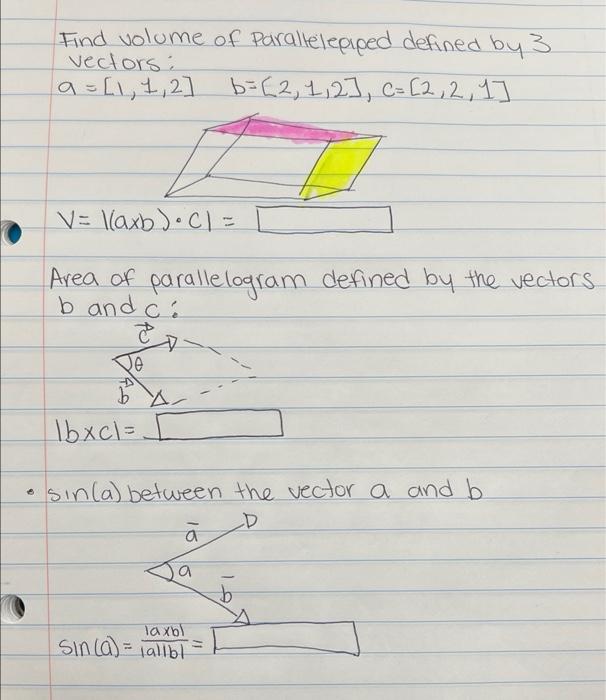 Find volume of Parallelepiped defined by 3
vectors:
a = [1, 1, 2] b = [2, 1, 2], c = [2, 2, 1]
V = |(axb) • c| =
Area of parallelogram defined by the vectors
b and c:
c
θ
b
|bxc| =
• sin(a) between the vector a and b
a
a
b
sin(a) = |axb| / |a||b| =